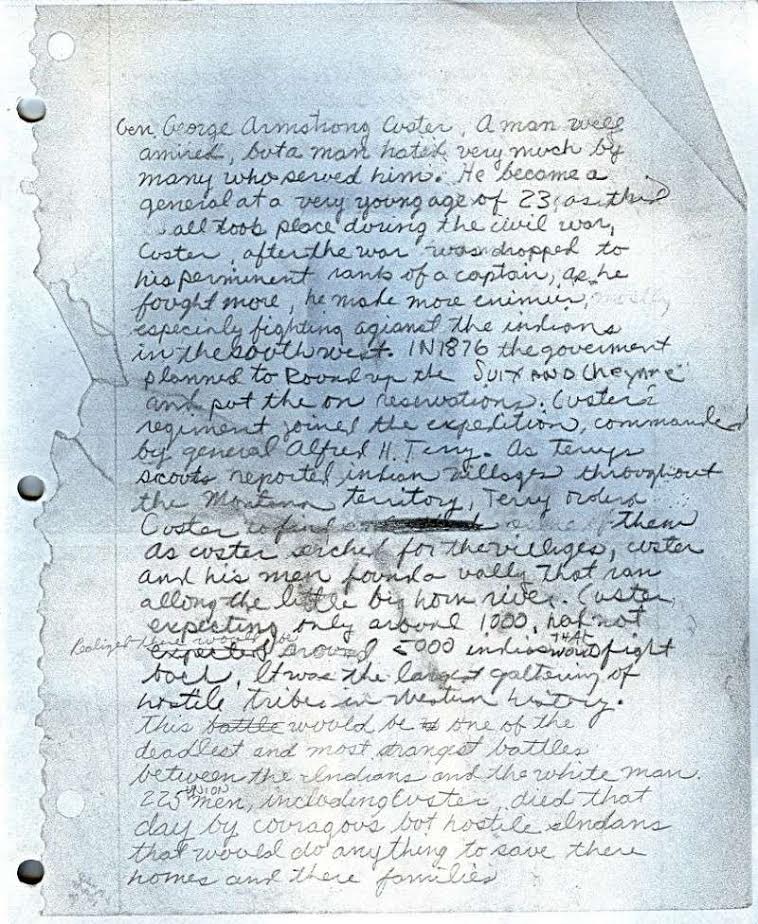 Gen George Armstrong Custer, A man well
amired, but a man hated very much by
many who served him. He became a
general at a very young age of 23, as this
all took place during the civil war,
Custer, after the war was dropped to
his perminent rank of a captain, as he
fought more, he made more enimies, mostly
especialy fighting agianst the indians
in the southwest. IN 1876 the goverment
planned to Round up the SUIX AND Cheynne
and put the on reservations. Custers
regiment joined the expedition, commanded
by general Alfred H. Terry. As terrys
scouts reported indian villages throughout
the Montana territory, Terry orderd
Custer to find them
As custer serched for the villeges, custer
and his men found a vally that ran
allong the little big horn river. Custer
expecting only around 1000, had not
Realized there would be
expected around 5000 indians THAT would fight
back, It was the largest gathering of
hostile tribes in Western history.
This battle would be one of the
deadlest and most strangest battles
between the Indians and the white man.
225 UNION men, including Custer, died that
day by couragous but hostile Indans
that would do anything to save there
homes and there families